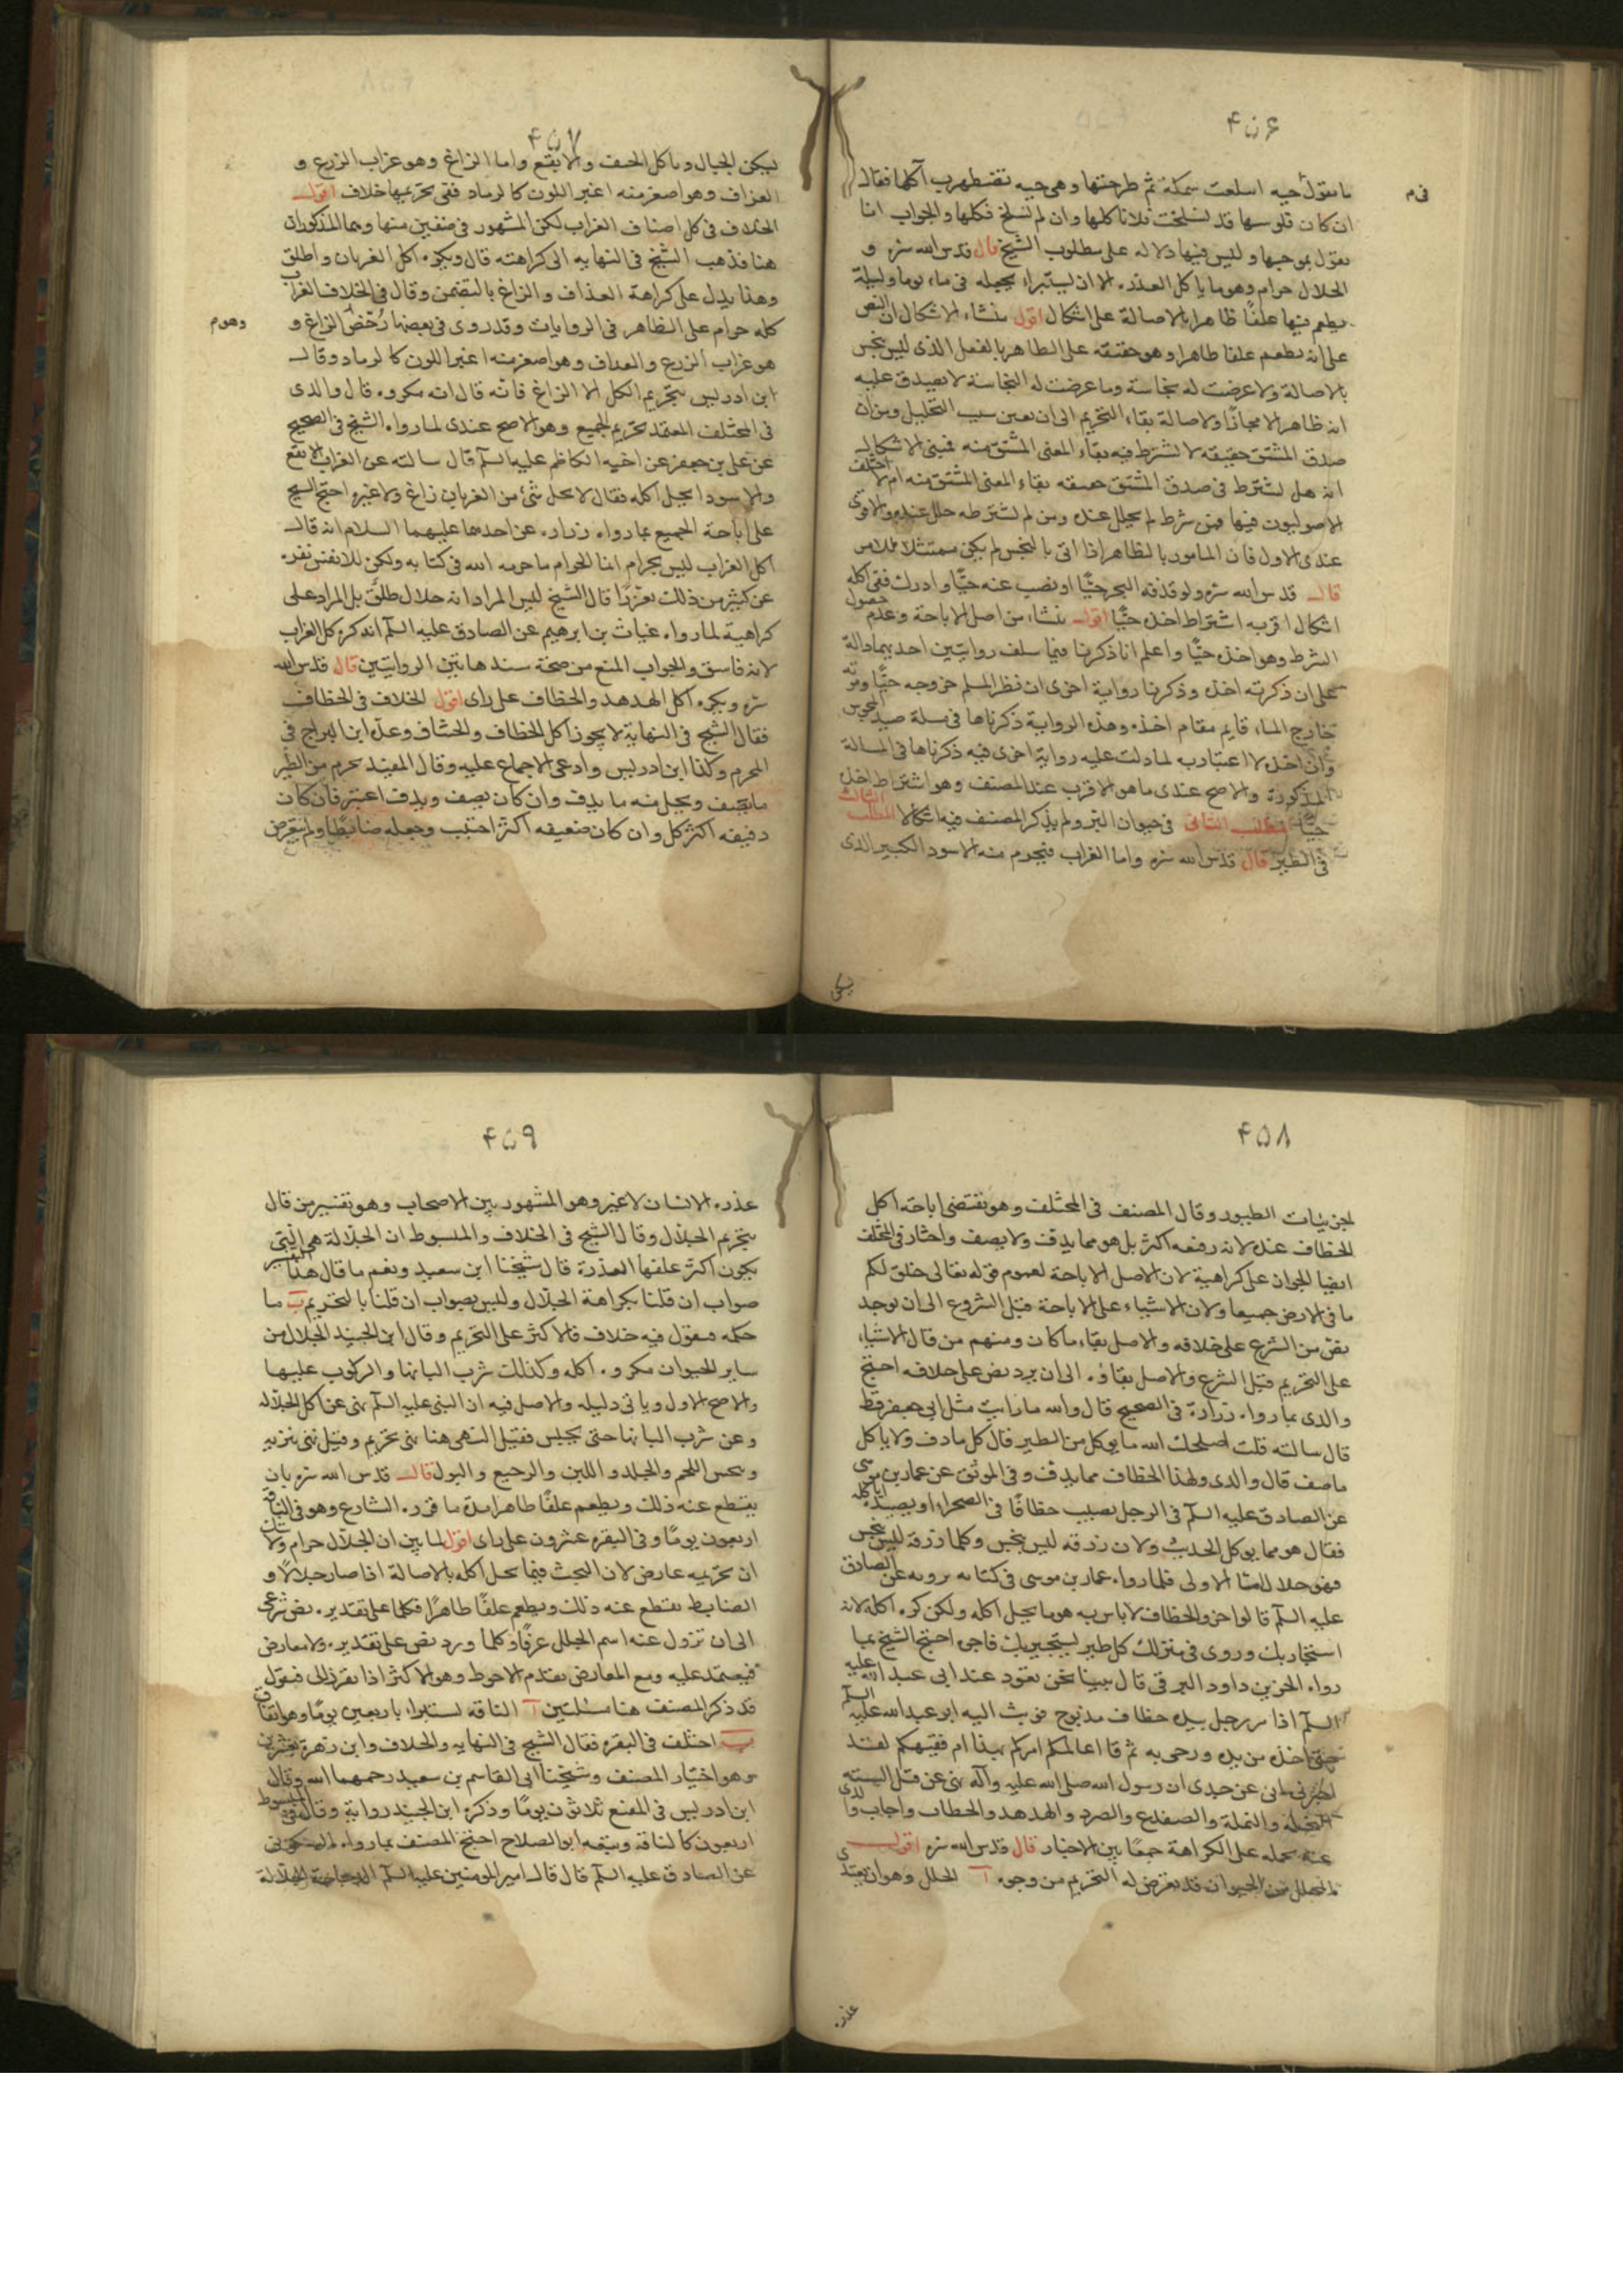 ۴۵۶
ما تقول حيه ابتلعت سمكة ثم طرحتها وهى حيه تضطرب آكلها فقال
ان كان فلوسها قد تسلخت فلا تاكلها وان لم تسلخ فكلها والجواب انا
نقول بموجبها وليس فيها دلاله على مطلوب الشيخ قال قدس الله سره و
الجلال حرام وهو ما ياكل العذره الا ان يستبراء بجعله فى ماء يوما وليلة
يطعم فيها علفًا طاهرا بالاصالة على اشكال اقول ينشاء الاشكال ان النص
على انه يطعم علفا طاهرا وهو حقيقه على الطاهر بالفعل الذى ليس بنجس
بالاصالة ولا عرضت له نجاسة وما عرضت له النجاسة لا يصدق عليه
انه طاهر الا مجازًا ولاصالة بقاء التحريم الى ان يعين سبب التحليل ومن ان
صدق المشتق حقيقه لا يشترط فيه بقاء المعنى المشتق منه فمبنى الاشكال
انه هل يشترط فى صدق المشتق حقيقه بقاء المعنى المشتق منه ام لا اختلف
الاصوليون فيها فمن شرط لم يحلل عنده ومن لم يشترطه حلل عنده والاقوى
عندى الاول فان المامور بالطاهر اذا اتى بالنجس لم يكن ممتثلا للامر
قال قدس الله سره ولو قذفه البحر حيًّا او نضب عنه حيًّا وادرك ففى اكله
اشكال اقربه اشتراط اخذه حيًّا اقول ينشاء من اصل الاباحة وعدم حصول
الشرط وهو اخذه حيًّا واعلم انا ذكرنا فيما سلف روايتين احديهما دالة
على ان ذكوته اخذه وذكرنا رواية اخرى ان نظر المسلم خروجه حيًّا وموته
خارج الماء قايم مقام اخذه وهذه الرواية ذكرناها فى مسلة صيد المجوس
وان اخذه لا اعتبار به لما دلت عليه رواية اخرى فيه ذكرناها فى المسالة
المذكورة والاصح عندى ما هو الاقرب عند المصنف وهو اشتراط اخذه
حيًّا المطلب الثانى فى حيوان البر ولم يذكر المصنف فيه اشكالا المطلب الثالث
فى الطير قال قدس الله سره واما الغراب فيحرم منه الاسود الكبير الذى
يسكن
۴۵۷
يسكن الجبال وياكل الجيف والابقع واما الزاغ وهو غراب الزرع و
الغداف وهو اصغر منه اغبر اللون كالرماد ففى تحريمها خلاف اقول
الخلاف فى كل اصناف الغراب لكن المشهور فى صنفين منها وهما المذكوران
هنا فذهب الشيخ فى النهايه الى كراهته قال ويكره اكل الغربان واطلق
وهذا يدل على كراهة الغداف والزاغ بالتضمن وقال فى الخلاف الغراب
كله حرام على الظاهر فى الروايات وقد روى فى بعضها رُخّص الزاغ و
هو غراب الزرع والغداف وهو اصغر منه اغبر اللون كالرماد وقال
ابن ادريس بتحريم الكل الا الزاغ فانّه قال انه مكروه قال والدى
فى المختلف المعتمد تحريم الجميع وهو الاصح عندى لما رواه الشيخ فى الصحيح
عن على بن جعفر عن اخيه الكاظم عليه السلم قال سالته عن الغراب الابقع
والاسود ايحل اكله فقال لا يحل شئ من الغربان زاغ ولا غيره احتج الشيخ
على اباحة الجميع بما رواه زراره عن احدهما عليهما السلام انه قال
اكل الغراب ليس بحرام انما الحرام ما حرمه الله فى كتابه ولكن للانفس تنفره
عن كثير من ذلك تعززًا قال الشيخ ليس المراد انه حلال طلق بل المراد على
كراهية لما رواه غياث بن ابرهيم عن الصادق عليه السلم انه كره اكل الغراب
لانه فاسق والجواب المنع من صحة سند هاتين الروايتين قال قدس الله
سره ويكره اكل الهدهد والخطاف على راى اقول الخلاف فى الخطاف
فقال الشيخ فى النهاية لا يجوز اكل الخطاف والخشاف وعدّ ابن البراج فى
المحرم وكذا ابن ادريس وادعى الاجماع عليه وقال المفيد يحرم من الطير
ما يصف ويحل منه ما يدف وان كان يصف ويدف اعتبر فان كان
دفيفه اكثر اكل وان كان صفيفه اكثر اجتنب وجعله ضابطًا ولم يتعرض
وهوم
فى م
۴۵۸
لجزئيات الطيور وقال المصنف فى المختلف وهو يقتضى اباحة اكل
الخطاف عنده لانه دفيفه اكثر بل هو مما يدف ولا يصف واختار فى المختلف
ايضا الجواز على كراهية لان الاصل الاباحة لعموم قوله تعالى خلق لكم
ما فى الارض جميعا ولان الاشياء على الاباحة قبل الشروع الى ان يوجد
نص من الشرع على خلافه والاصل بقاء ما كان ومنهم من قال الاشياء
على التحريم قبل الشرع والاصل بقاؤه الى ان يرد نص على خلافه احتج
والدى بما رواه زرارة فى الصحيح قال والله ما رايت مثل ابى جعفر قط
قال سالته قلت اصلحك الله ما يوكل من الطير قال كل ما دف ولا ياكل
ما صف قال والدى ولهذا الخطاف مما يدف وفى الموثق عن عمار بن موسى
عن الصادق عليه السلم فى الرجل يصيب خطافًا فى الصحراء او يصيده اياكله
فقال هو مما يوكل الحديث ولان زرقه ليس بنجس وكلما زرقه ليس بنجس
فهو حلال اما الاولى فلما رواه عمار بن موسى فى كتابه يرويه عن الصادق
عليه السلم قالوا خرو الخطاف لاباس به هو ما يحل اكله ولكن كره اكله لانه
استجار بك وروى فى منزلك كل طير يستجير بك فاجره احتج الشيخ بما
رواه الحسن بن داود الرقى قال بينا نحن قعود عند ابى عبد الله عليه
السلم اذا مر رجل بيده خطاف مذبوح فوثب اليه ابو عبد الله عليه السلم
حتى اخذه من يده ورحى به ثم قا اعالمكم امركم بهذا ام فقيهكم لقد
اخبرنى ابى عن جدى ان رسول الله صلى الله عليه وآله نهى عن قتل الستة
النحلة والنملة والصفدع والصرد والهدهد والخطاف واجاب والدى
عنه بحمله على الكراهة جمعًا بين الاخبار قال قدس الله سره اقول
المحلل من الحيوان قد يعرض له التحريم من وجوه آ الجلل وهو ان يغتذى
عذره
۴۵۹
عذره الانسان لا غير وهو المشهور بين الاصحاب وهو تفسير من قال
بتحريم الجلال وقال الشيخ فى الخلاف والمبسوط ان الجلّالة هى التى
يكون اكثر علفها العذرة قال شيخنا ابن سعيد ونعم ما قال هذا التفسير
صواب ان قلنا بكراهة الجلال وليس بصواب ان قلنا بالتحريم ب ما
حكمه فنقول فيه خلاف فالاكثر على التحريم وقال ابن الجنيد الجلال من
ساير الحيوان مكروه اكله وكذلك شرب البانها والركوب عليها
والاصح الاول وياتى دليله والاصل فيه ان النبى عليه السلم نهى عن اكل الجلاله
وعن شرب البانها حتى يحبس فقيل النهى هنا نهى تحريم وقيل نهى تنزيه
وينجس اللحم والجلد واللبن والرجيع والبول قال قدس الله سره بان
يقطع عنه ذلك ويطعم علفًا طاهرا مدة ما قرره الشارع وهو فى الناقه
اربعون يومًا وفى البقره عشرون على راى اقول لما بين ان الجلّال حرام ولا شك
ان تحريمه عارض لان البحث فيما يحل اكله بالاصالة اذا صار جلالًا و
الضابط يقطع عنه ذلك ويطعم علفًا طاهرًا فكلما على تقديره نص شرعى
الى ان تزول عنه اسم الجلل عرفًا وكلما ورد نص على تقديره ولا معارض
فيعتمد عليه ومع المعارض يقدم الاحوط وهو الاكثر اذا تقرر ذلك فنقول
قد ذكر المصنف هنا مسئلتين آ الناقه تستبراء باربعين يومًا وهو اتفاق
ب اختلف فى البقره فقال الشيخ فى النهايه والخلاف وابن زهرة بعشرين
وهو اختيار المصنف وشيخنا ابى القاسم بن سعيد رحمهما الله وقال
ابن ادريس فى المقنع ثلاثون يومًا وذكره ابن الجنيد رواية وقال فى المبسوط
اربعون كالناقه وتبعه ابو الصلاح احتج المصنف بما رواه السكونى
عن الصادق عليه السلم قال قال امير المومنين عليه السلم الدجاجة الجلالة